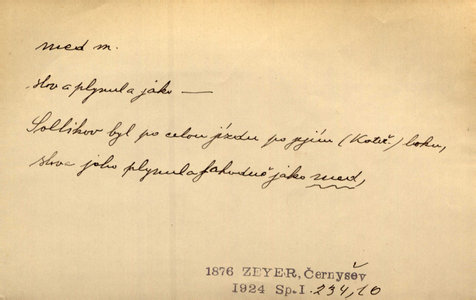 med m.
slova plynula jako —
Soltikov byl po celou jízdu po jejím (Kateř.) boku,
slova jeho plynula lahodně jako med,
1876 ZEYER, Černyšev
1924 Sp.I. 234,10